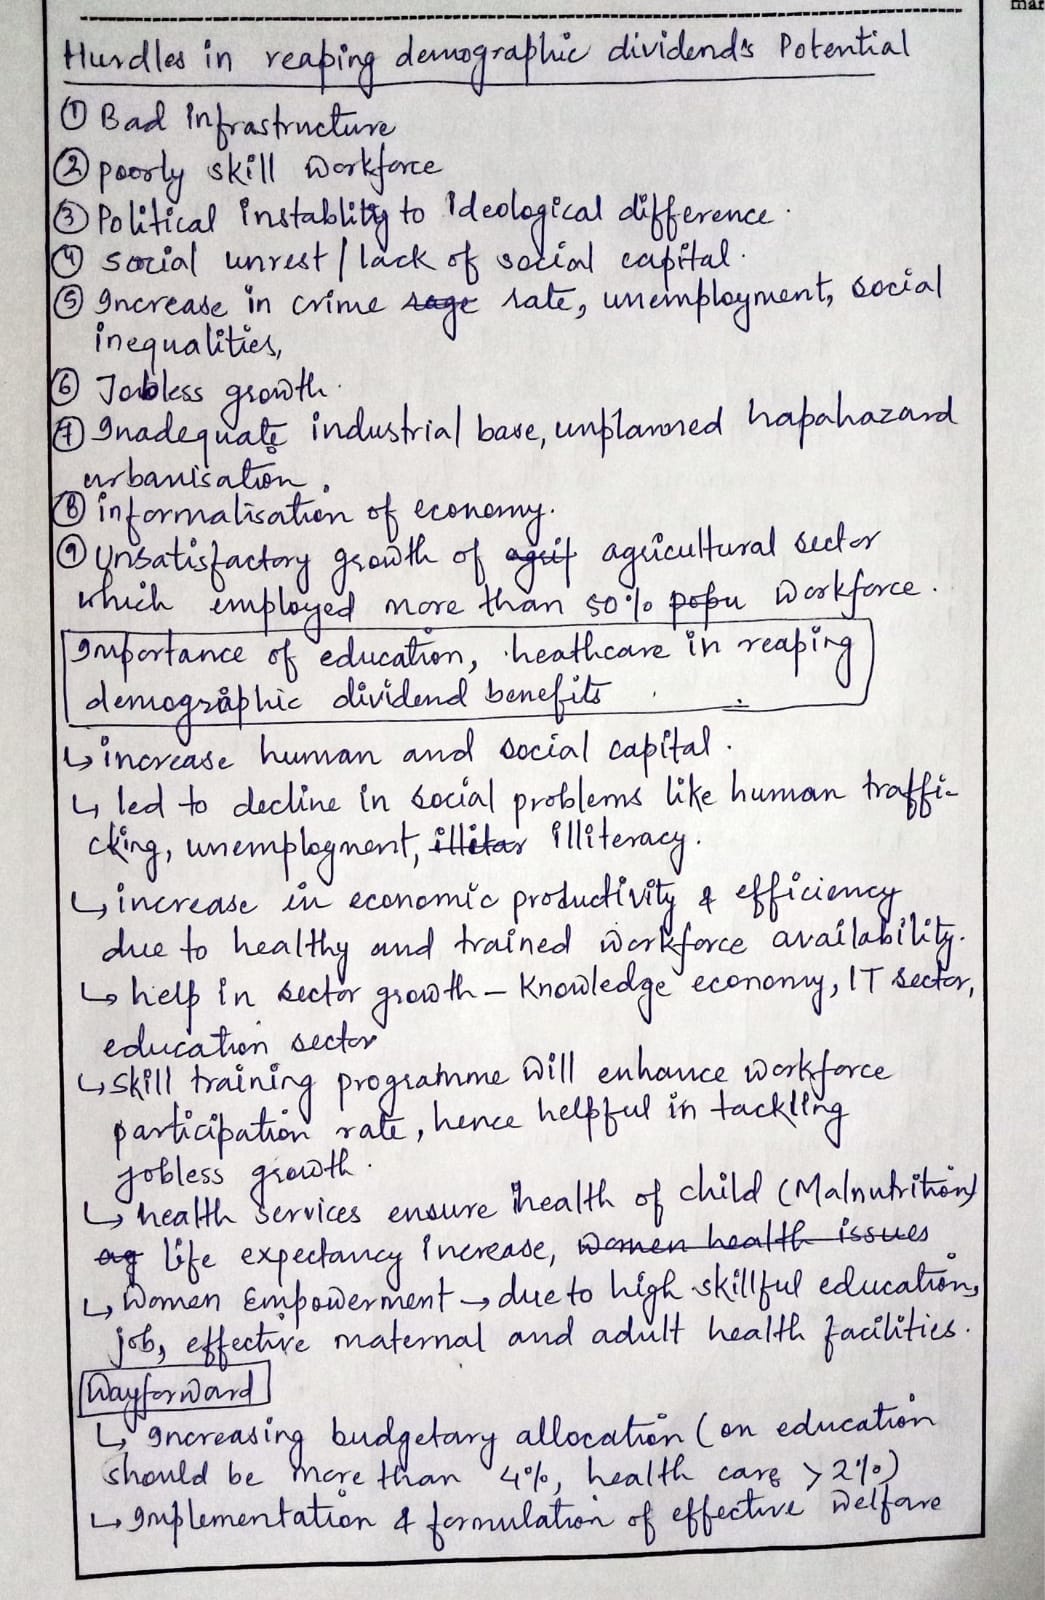 mar
Hurdles in reaping demographic dividend's Potential
① Bad infrastructure
② poorly skill workforce
③ Political instablitity to Ideological difference.
④ social unrest/lack of social capital.
⑤ Increase in crime rate, unemployment, social
inequalities,
⑥ Jobless growth.
⑦ Inadequate industrial base, unplanned hapahazard
urbanisation.
⑧ informalisation of economy.
⑨ Unsatisfactory growth of agricultural sector
which employed more than 50% popu workforce.
Importance of education, heathcare in reaping
demographic dividend benefits
↳ increase human and social capital.
↳ led to decline in social problems like human traffi-
cking, unemployment, illitar illiteracy.
↳ increase in economic productivity & efficiency
due to healthy and trained workforce availability.
↳ help in sector growth – Knowledge economy, IT sector,
education sector
↳ skill training programme will enhance workforce
participation rate, hence helpful in tackling
jobless growth.
↳ health services ensure health of child (Malnutrition)
ag life expectancy increase, women health issues
↳ Women Empowerment → due to high skillful education,
job, effective maternal and adult health facilities.
Wayforward
↳ Increasing budgetary allocation (on education
should be more than 4%, health care > 2%)
↳ Implementation & formulation of effective welfare